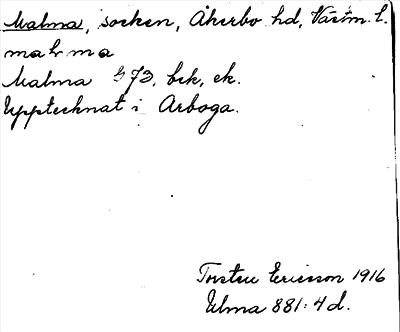 Malma, socken, Åkerbo hd, Västm. l.
malma
Malma 1/73, bek, ek.
Upptecknat i Arboga.
Torsten Ericsson 1916
Ulma 881:4d.